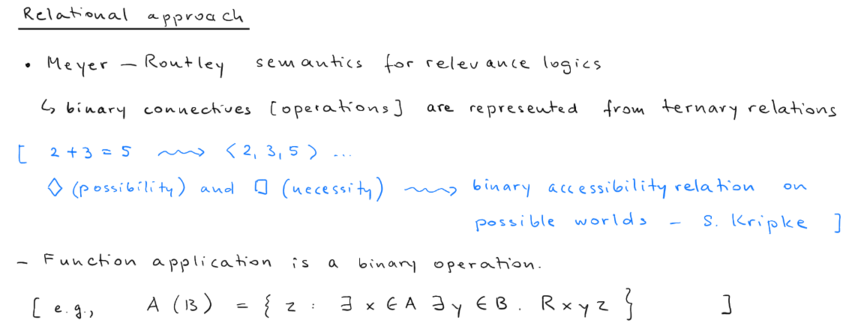 Relational approach
• Meyer – Routley semantics for relevance logics
↳ binary connectives [operations] are represented from ternary relations
[ 2 + 3 = 5 ⟿ ⟨2, 3, 5⟩ ...
◇ (possibility) and □ (necessity) ⟿ binary accessibility relation on
possible worlds – S. Kripke ]
– Function application is a binary operation.
[ e.g., A (B) = { z : ∃ x ∈ A ∃ y ∈ B . R x y z } ]